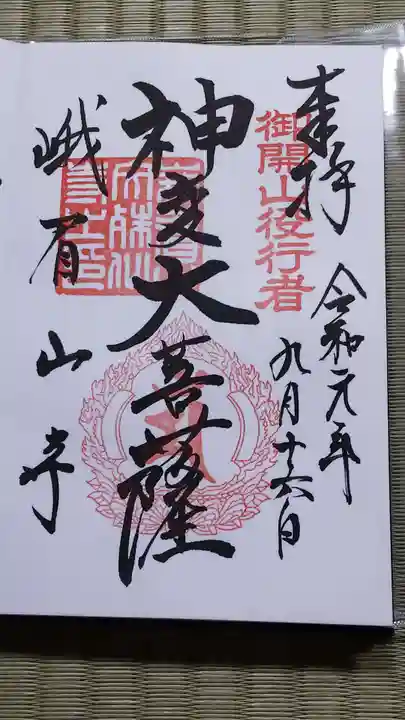 奉拝
御開山役行者
令和元年
九月十六日
神変大菩薩
峨眉山寺